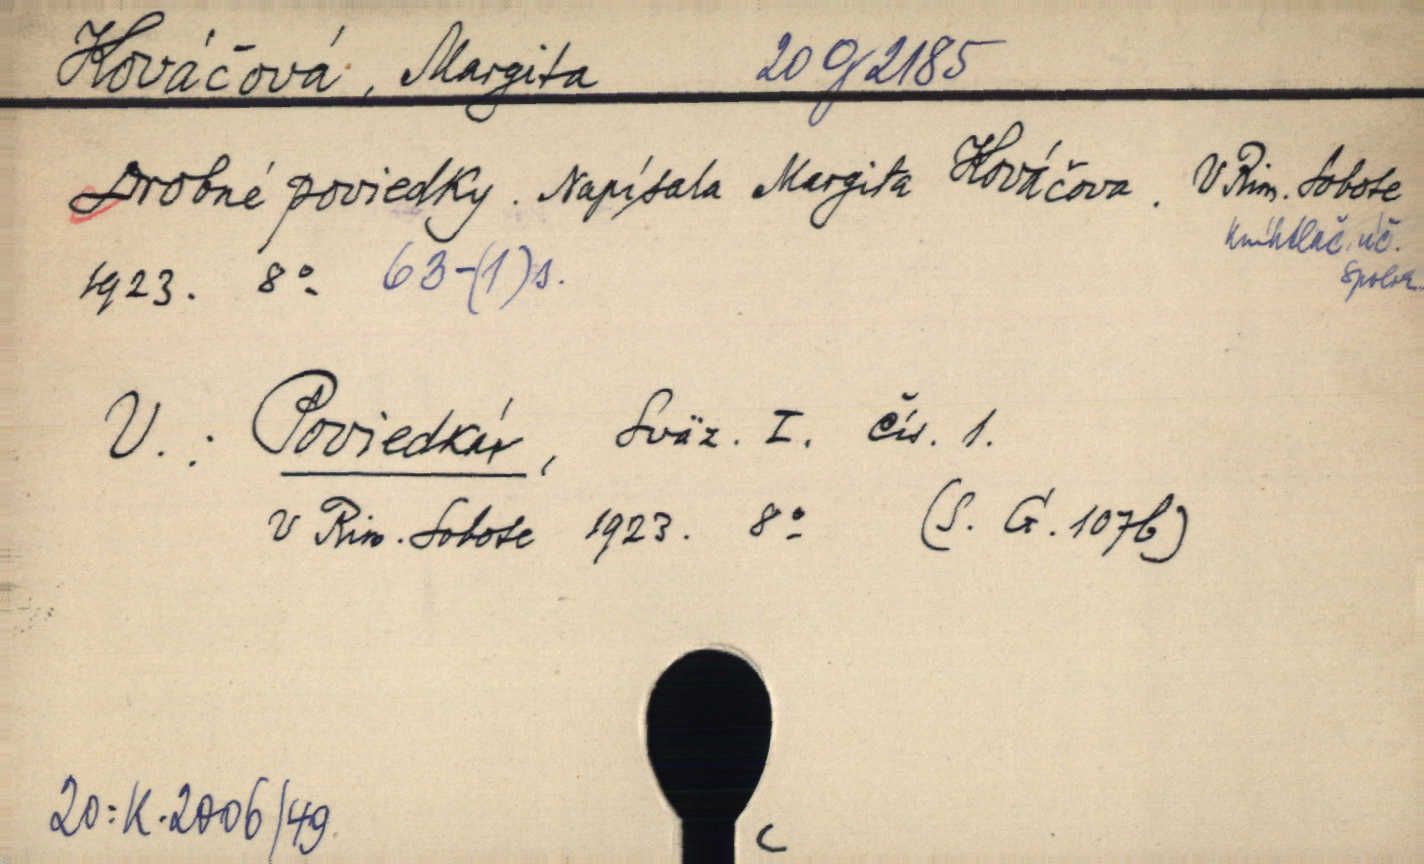 Kováčová, Margita 20 g 2185
Drobné poviedky. Napísala Margita Kováčova. V Rim. Sobote
kníhtlač. úč.
spoloč.
1923. 8° 63-(1)s.
V.: Poviedkár, Sväz. I. čís. 1.
v Rim. Sobote 1923. 8° (S. G. 107b)
20:K.2006/49
C